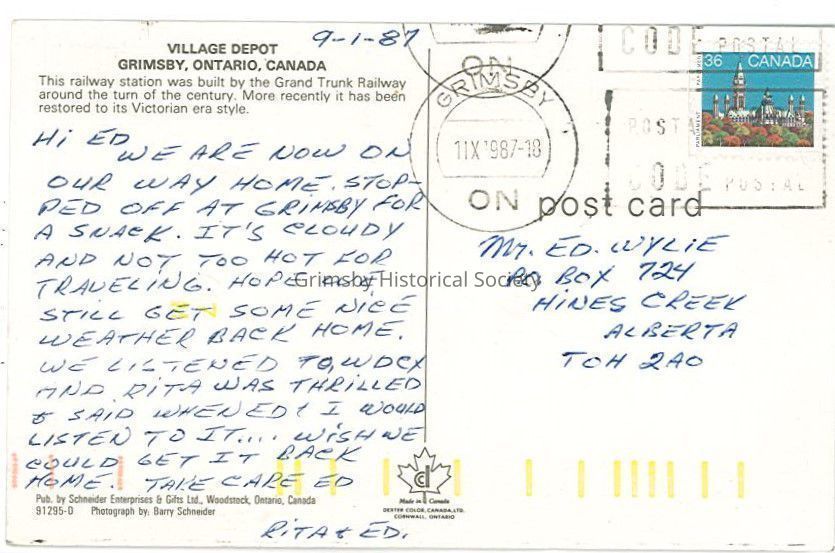 9-1-87
VILLAGE DEPOT
GRIMSBY, ONTARIO, CANADA
This railway station was built by the Grand Trunk Railway
around the turn of the century. More recently it has been
restored to its Victorian era style.
HI ED
WE ARE NOW ON
OUR WAY HOME. STOP-
PED OFF AT GRIMSBY FOR
A SNACK. IT'S CLOUDY
AND NOT TOO HOT FOR
TRAVELING. HOPE WE
STILL GET SOME NICE
WEATHER BACK HOME.
WE LISTENED TO, WDCX
AND RITA WAS THRILLED
& SAID WHEN ED & I WOULD
LISTEN TO IT.... WISH WE
COULD GET IT BACK
HOME. TAKE CARE ED
RITA & ED.
Pub. by Schneider Enterprises & Gifts Ltd., Woodstock, Ontario, Canada
91295-D Photograph by: Barry Schneider
cd
Made in Canada
DEXTER COLOR, CANADA, LTD.
CORNWALL, ONTARIO
ON
GRIMSBY
11 IX 1987-18
ON
CODE POSTAL
POSTAL
CODE POSTAL
36 CANADA
PARLIAMENT
post card
Mr. ED. WYLIE
PO BOX 724
HINES CREEK
ALBERTA
TOH 2AO
Grimsby Historical Society